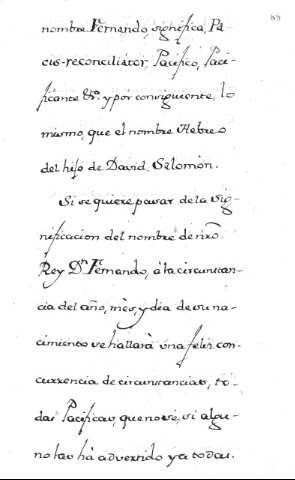 88
nombre Fernando significa, Pa-
cis-reconciliator, Pacifico, Paci-
ficante &c. y por consiguiente, lo
mismo, que el nombre Hebreo
del hijo de David, Salomòn.
Si se quiere pasar de la sig-
nificacion del nombre de nrõ.
Rey Dn. Fernando, à la circunstan-
cia del año, mès, y dia de su na-
cimiento se hallarà una feliz con-
currencia de circunstancias, to-
das Pacificas, que no sè, si algu-
no las hà advertido ya todas.